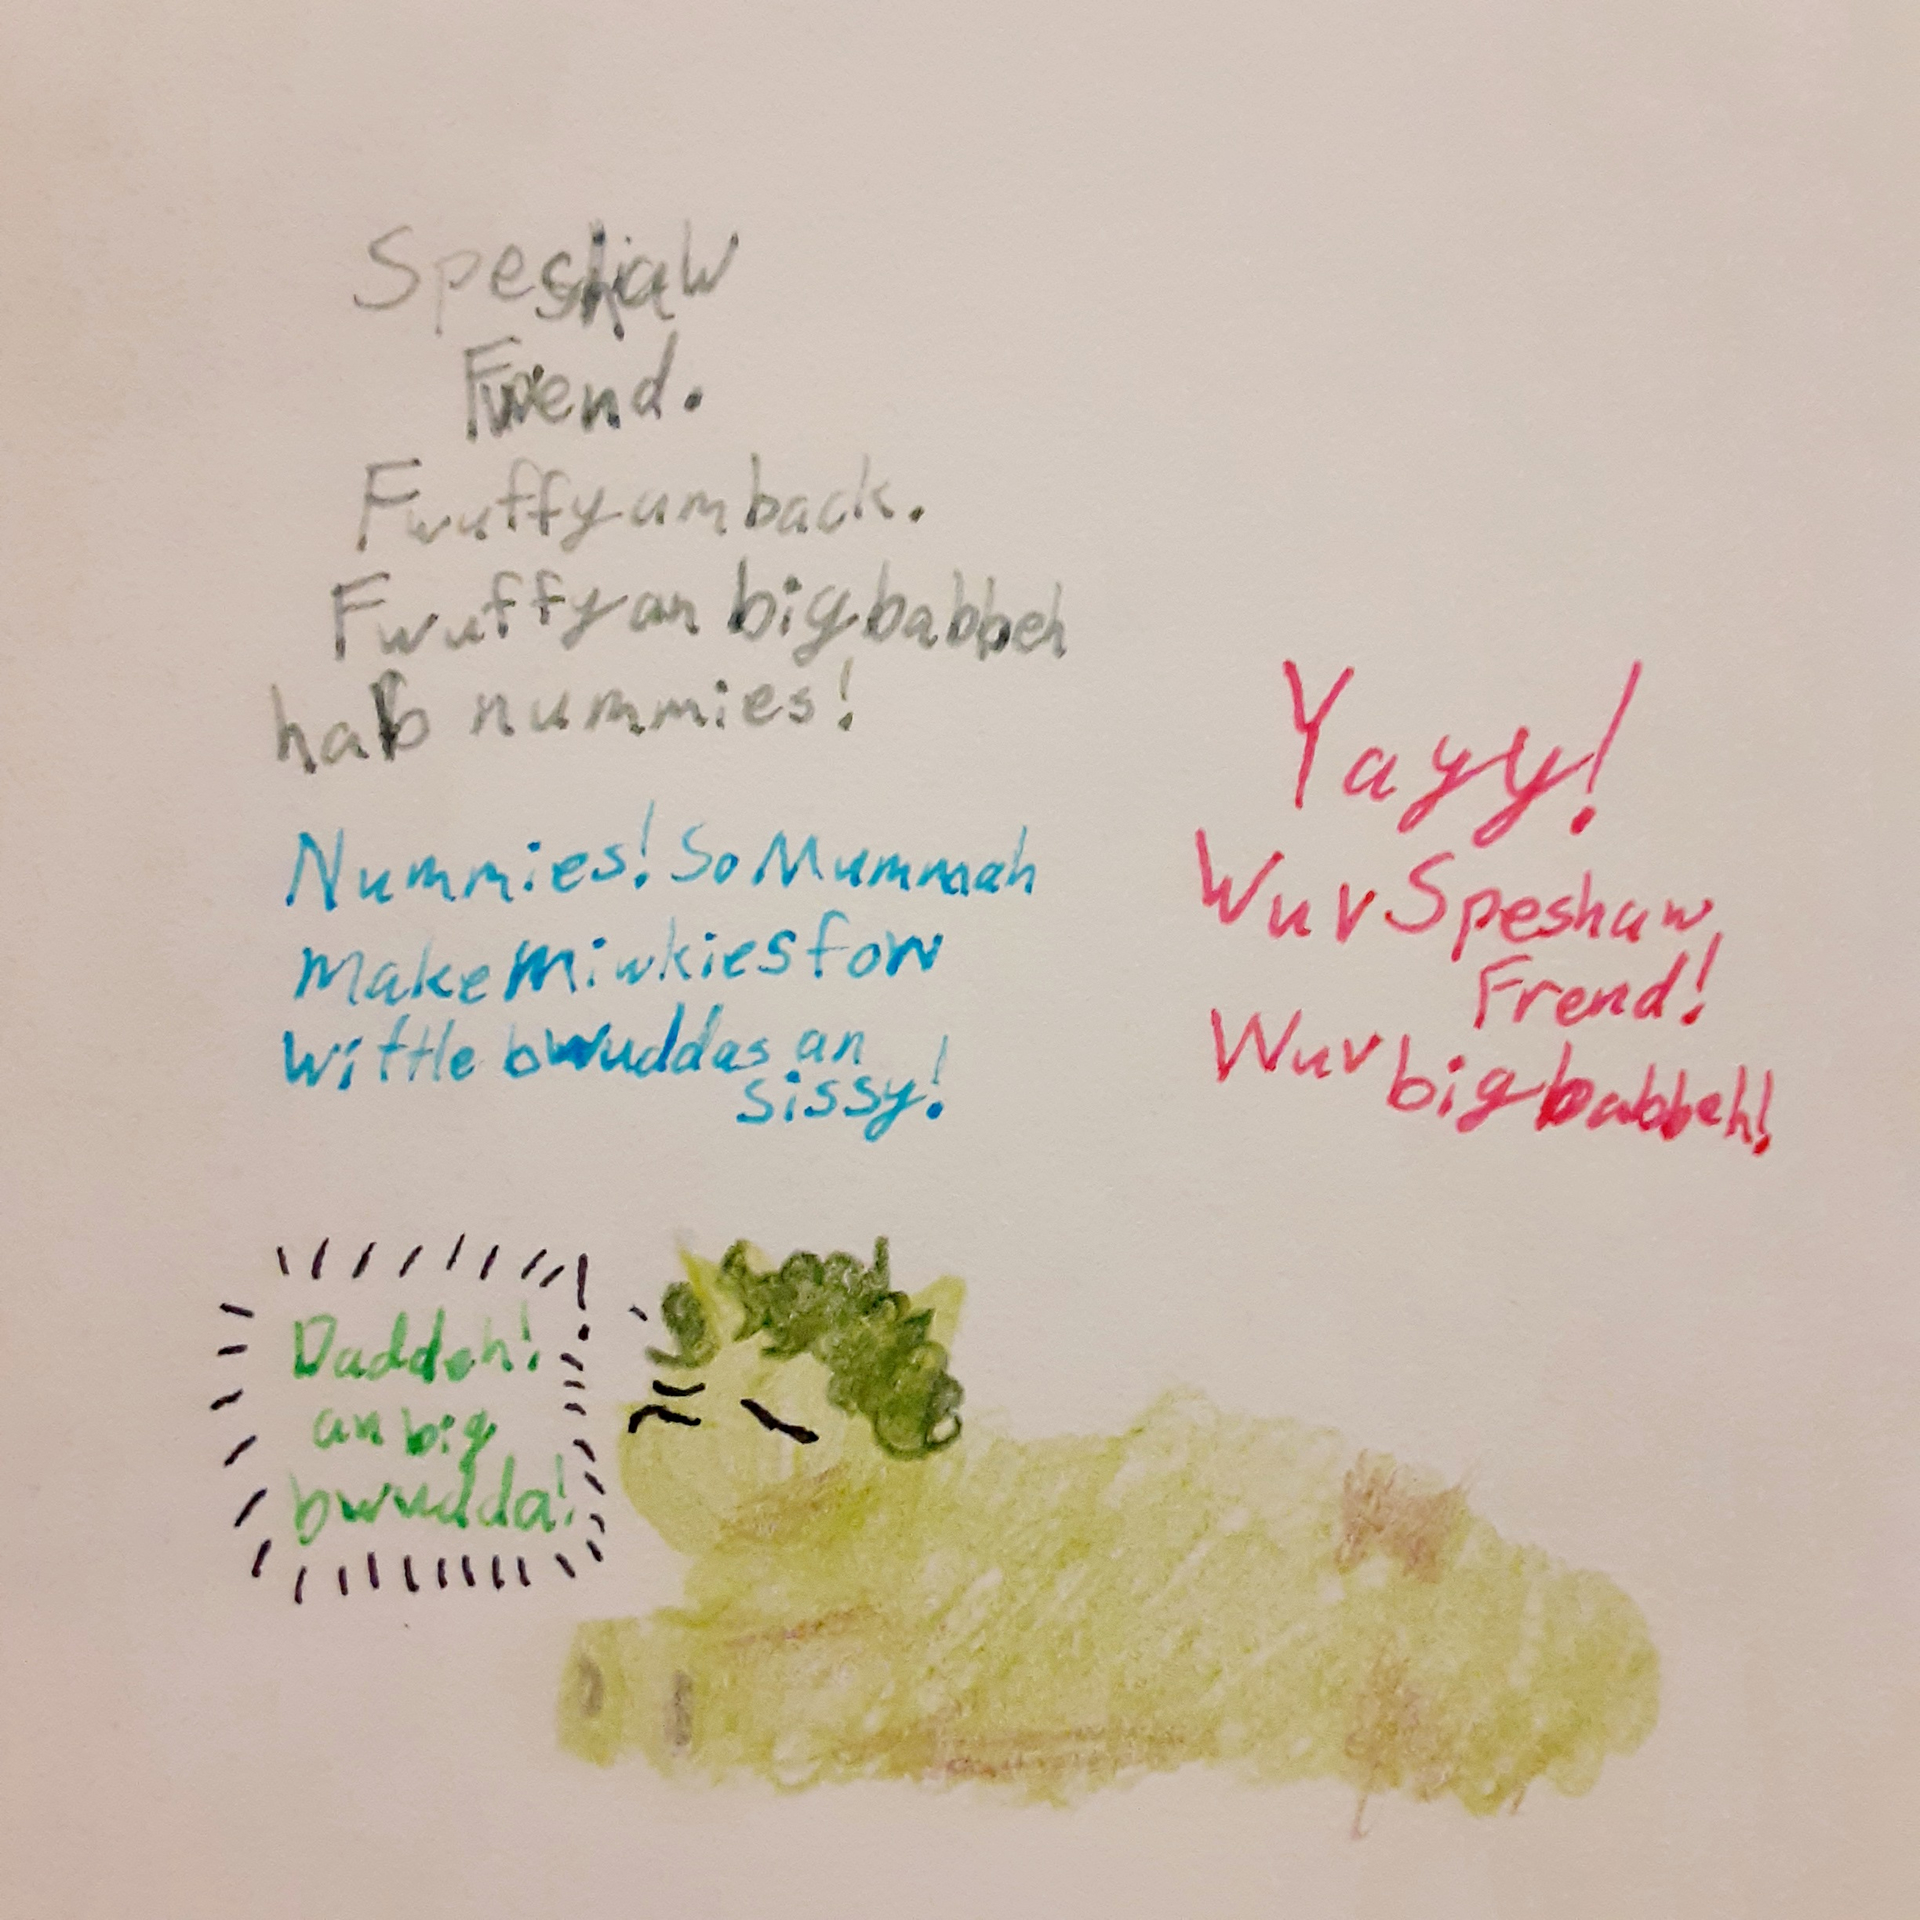 Speshaw
Fwend.
Fwuffy am back.
Fwuffy an big babbeh
hab nummies!
Nummies! So Mummah
make miwkies fow
wittle bwuddas an
sissy!
Yayy!
Wuv Speshaw
Frend!
Wuv big babbeh!
Daddeh!
an big
bwudda!